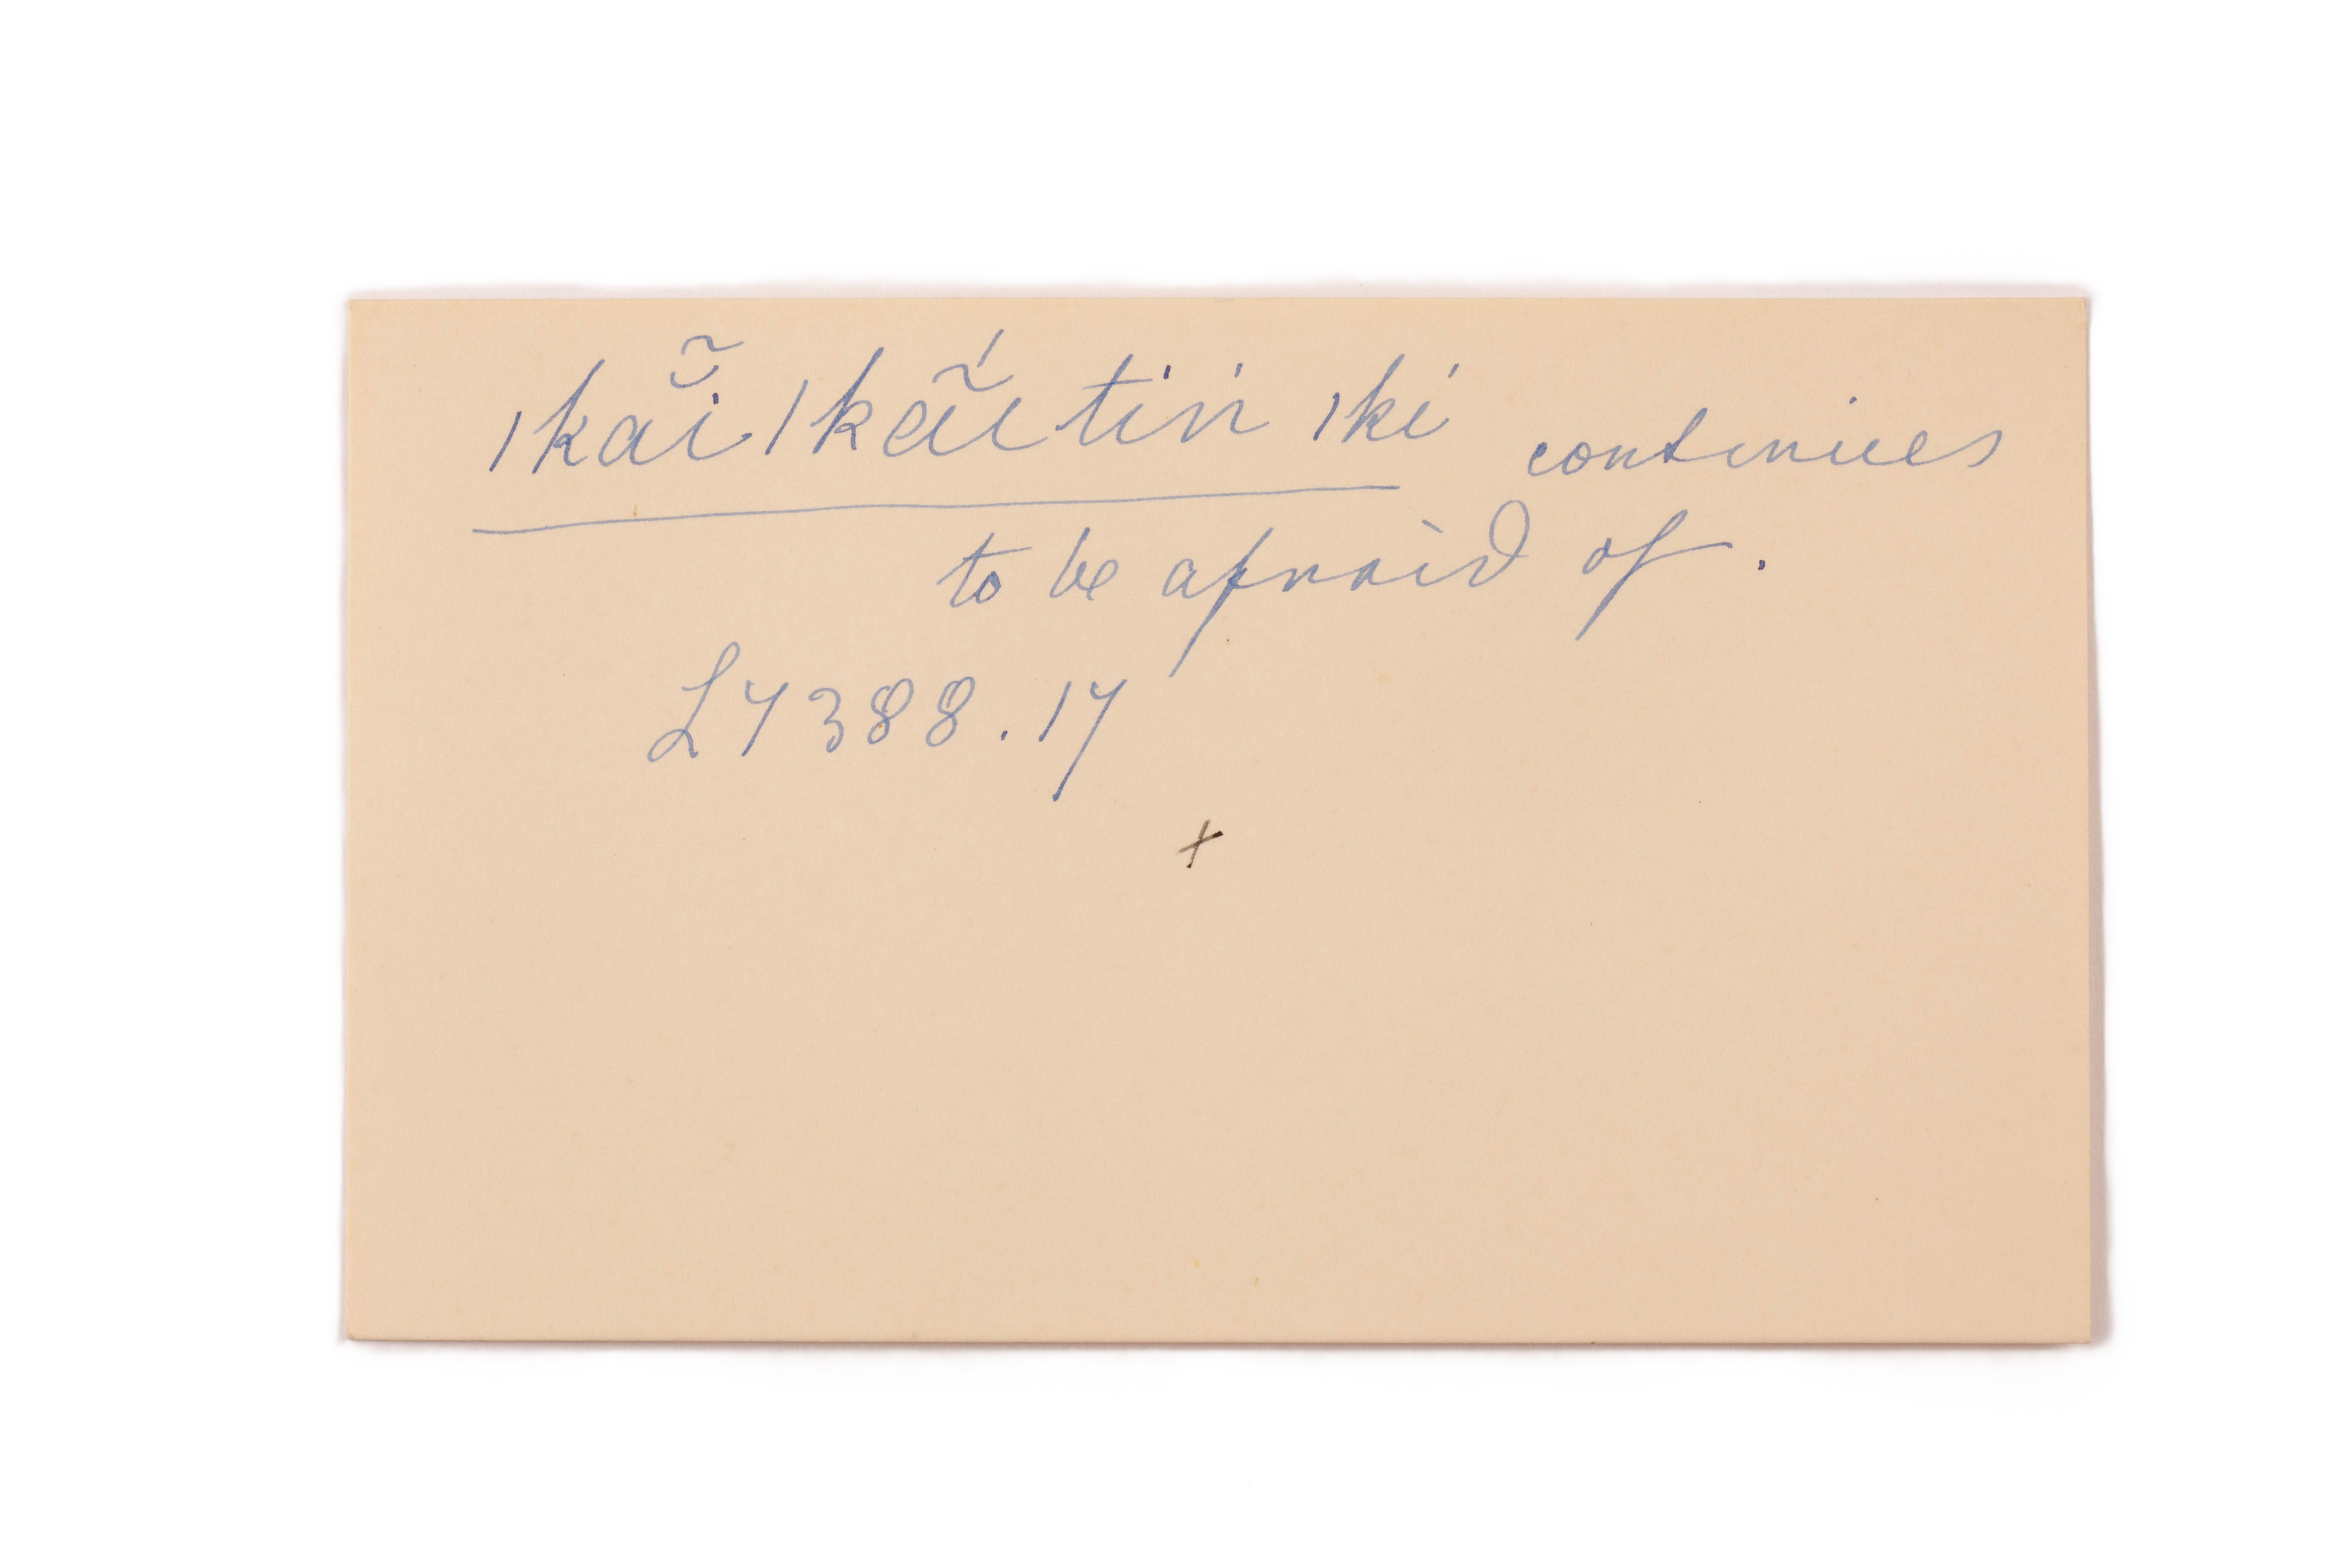 ǀkaῐ̃ ǀkã́ĭtin ǀki continues
to be afraid of.
L7388.17
x